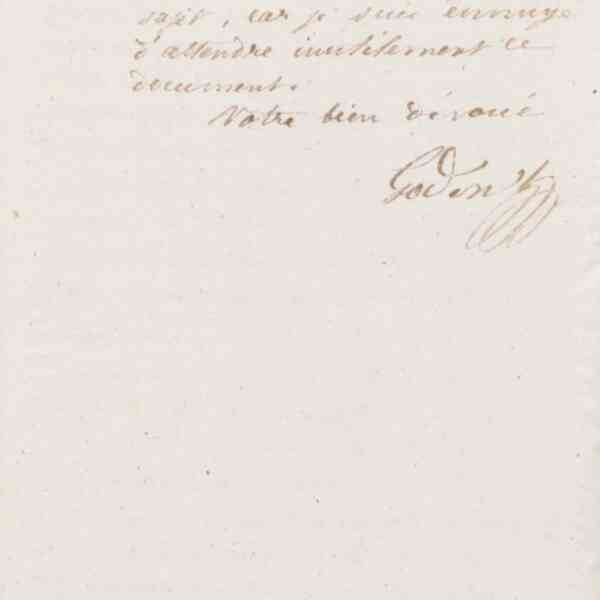 sujet, car je suis ennuyé
d'attendre inutilement ce
document.
Votre bien dévoué
Godin